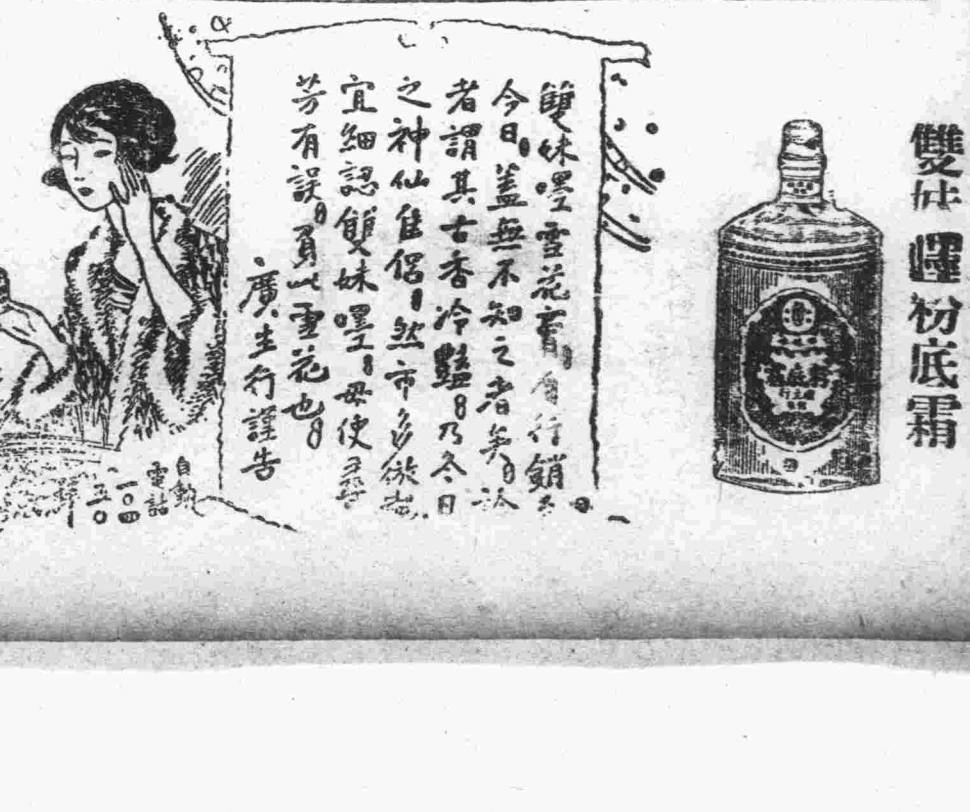 雙妹嚜粉底霜
雙妹嚜雪花膏。自行銷
今日。蓋無不知之者矣。
者謂其古香冷豔。乃冬日
之神仙隹侶。然市多
宜細認雙妹嚜。毋使尋
芳有誤。負此雪花也。
廣生行謹告
自動
電話
一〇四
五〇